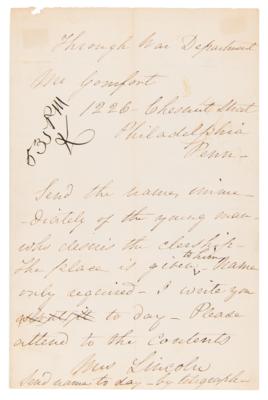 Through War Department
Mr Comfort
1226 Chesnut Street
Philadelphia
Penn-
Send the name, imme-
-diately of the young man-
who desires the clerkship-
The place is given to him, Name
only required - I write you
to day - Please
attend to the contents
Mrs Lincoln
Send name to day - by telegraph-